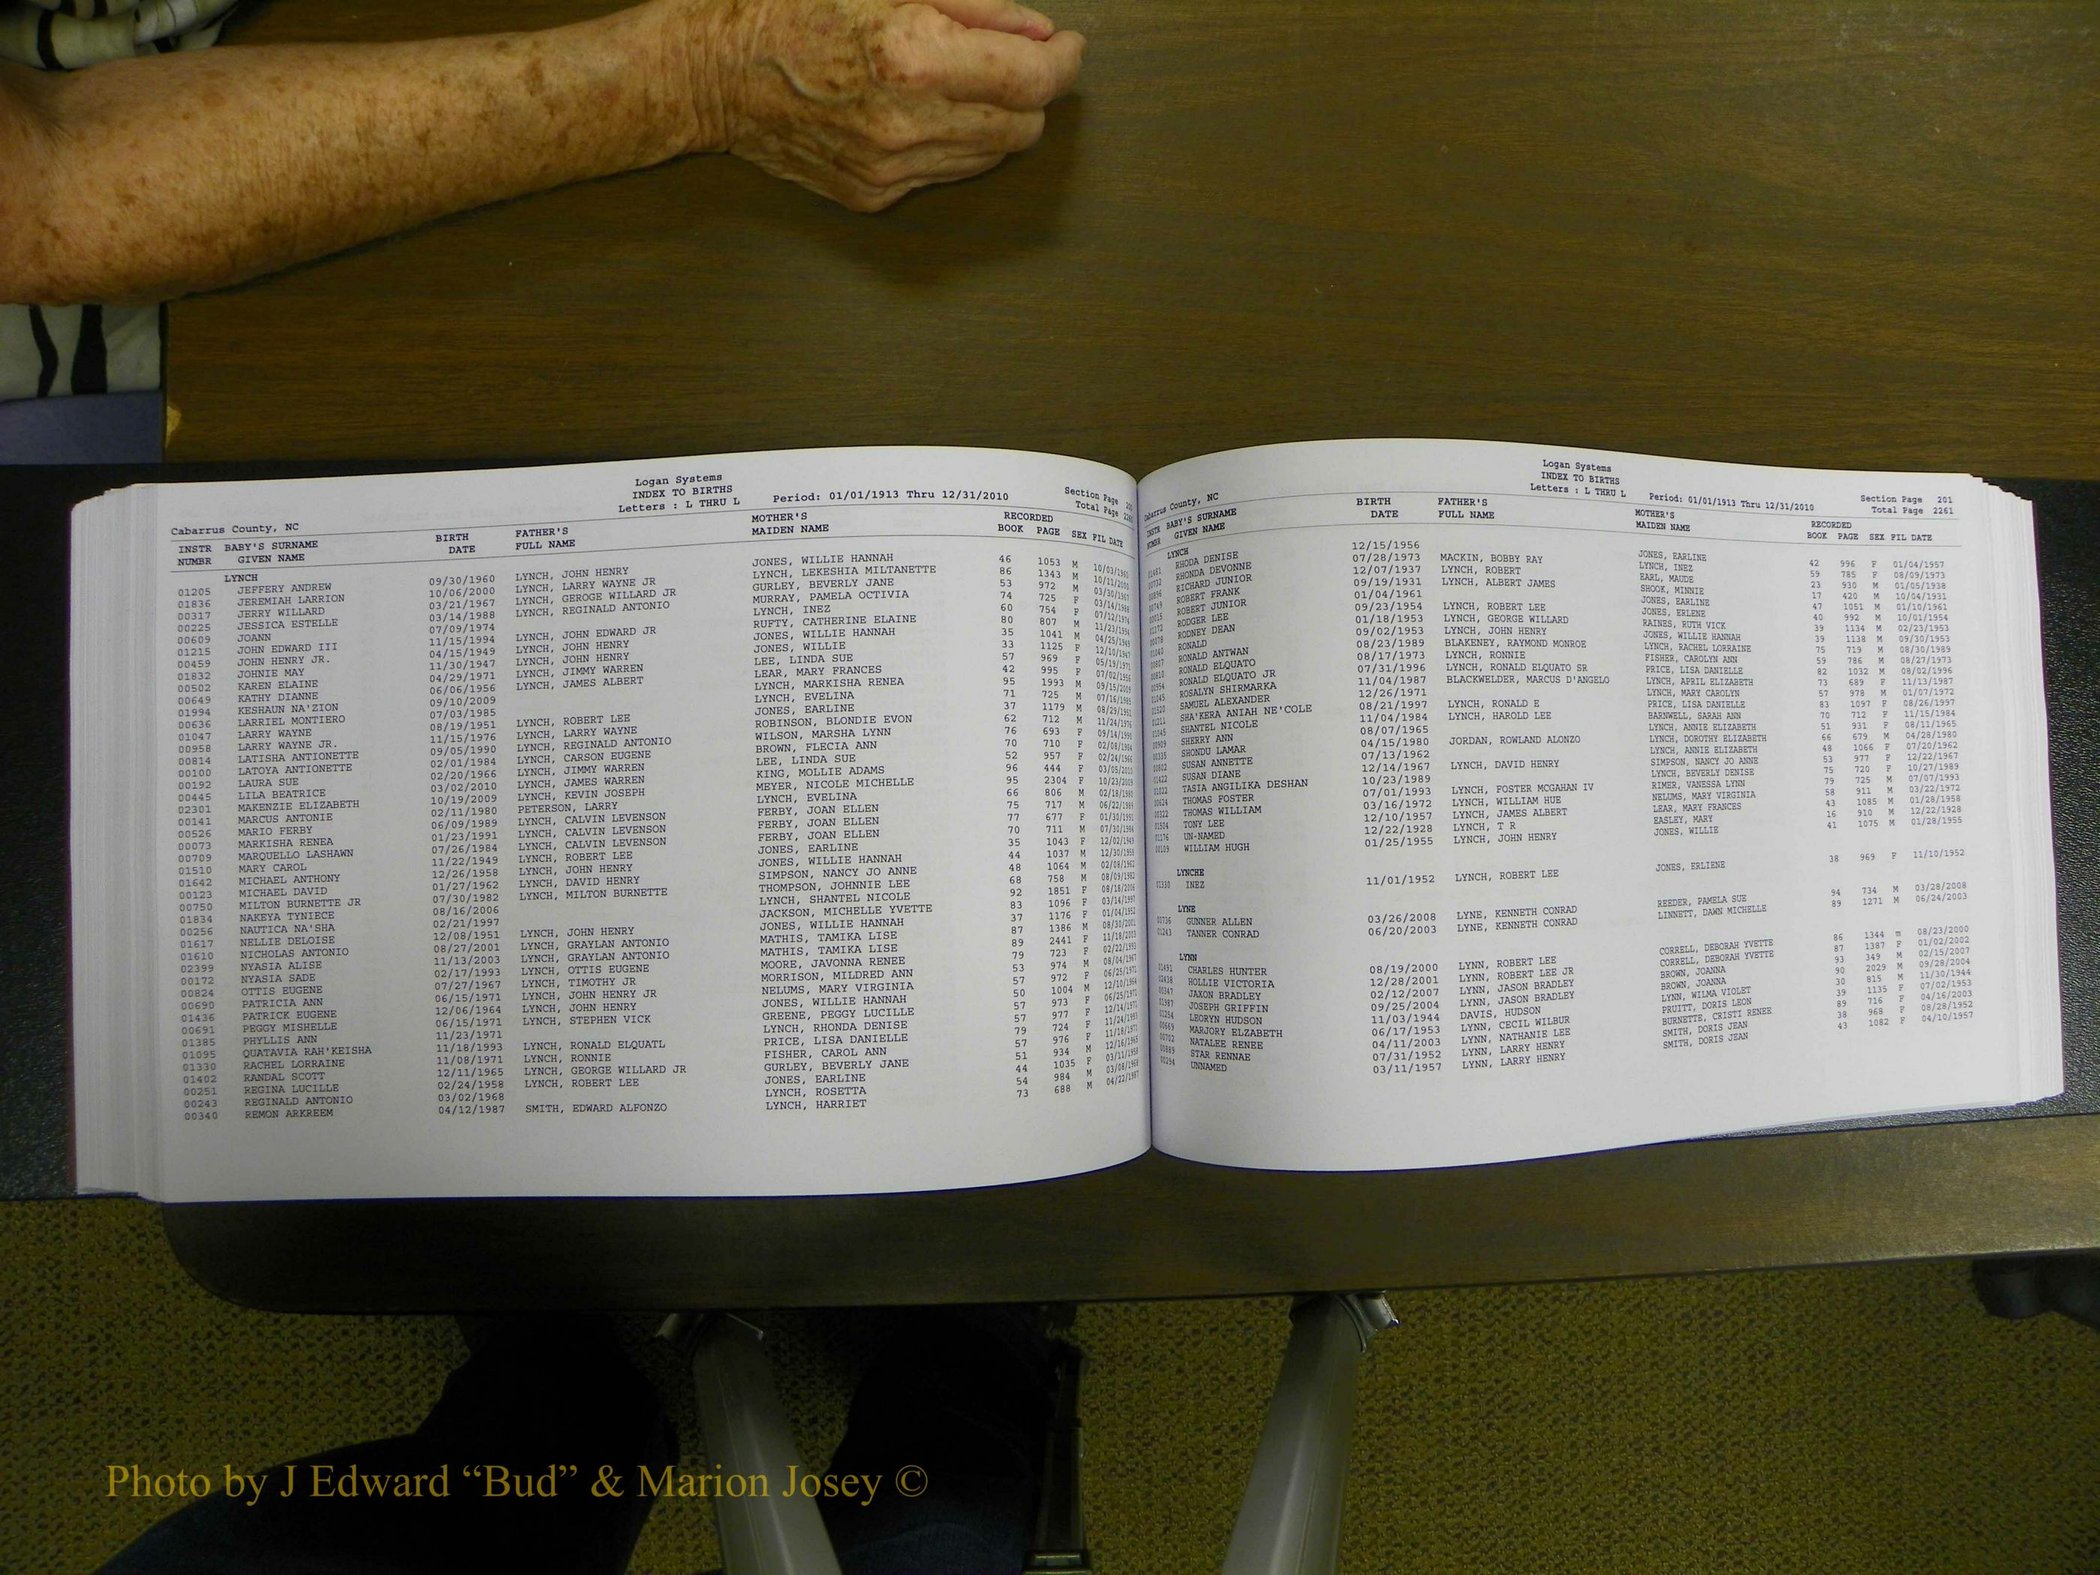 Logan Systems
INDEX TO BIRTHS
Letters : L THRU L Period: 01/01/1913 Thru 12/31/2010
Section Page 200
Total Page 2260
Cabarrus County, NC
INSTR BABY'S SURNAME BIRTH FATHER'S MOTHER'S RECORDED
NUMBR GIVEN NAME DATE FULL NAME MAIDEN NAME BOOK PAGE SEX FIL DATE
LYNCH
01205 JEFFERY ANDREW 09/30/1960 LYNCH, JOHN HENRY JONES, WILLIE HANNAH 46 1053 M 10/03/1960
01836 JEREMIAH LARRION 10/06/2000 LYNCH, LARRY WAYNE JR LYNCH, LEKESHIA MILTANETTE 86 1343 M 10/11/2000
00317 JERRY WILLARD 03/21/1967 LYNCH, GEROGE WILLARD JR GURLEY, BEVERLY JANE 53 972 M 03/30/1967
00225 JESSICA ESTELLE 03/14/1988 LYNCH, REGINALD ANTONIO MURRAY, PAMELA OCTIVIA 74 725 F 03/14/1988
00609 JOANN 07/09/1974 LYNCH, INEZ 60 754 F 07/12/1974
01215 JOHN EDWARD III 11/15/1994 LYNCH, JOHN EDWARD JR RUFTY, CATHERINE ELAINE 80 807 M 11/23/1994
00459 JOHN HENRY JR. 04/15/1949 LYNCH, JOHN HENRY JONES, WILLIE HANNAH 35 1041 M 04/25/1949
01832 JOHNIE MAY 11/30/1947 LYNCH, JOHN HENRY JONES, WILLIE 33 1125 F 12/10/1947
00502 KAREN ELAINE 04/29/1971 LYNCH, JIMMY WARREN LEE, LINDA SUE 57 969 F 05/19/1971
00649 KATHY DIANNE 06/06/1956 LYNCH, JAMES ALBERT LEAR, MARY FRANCES 42 995 F 07/02/1956
01994 KESHAUN NA'ZION 09/10/2009 LYNCH, MARKISHA RENEA 95 1993 M 09/15/2009
00636 LARRIEL MONTIERO 07/03/1985 LYNCH, EVELINA 71 725 M 07/16/1985
01047 LARRY WAYNE 08/19/1951 LYNCH, ROBERT LEE JONES, EARLINE 37 1179 M 08/29/1951
00958 LARRY WAYNE JR. 11/15/1976 LYNCH, LARRY WAYNE ROBINSON, BLONDIE EVON 62 712 M 11/24/1976
00814 LATISHA ANTIONETTE 09/05/1990 LYNCH, REGINALD ANTONIO WILSON, MARSHA LYNN 76 693 F 09/14/1990
00100 LATOYA ANTIONETTE 02/01/1984 LYNCH, CARSON EUGENE BROWN, FLECIA ANN 70 710 F 02/08/1984
00192 LAURA SUE 02/20/1966 LYNCH, JIMMY WARREN LEE, LINDA SUE 52 957 F 02/24/1966
00445 LILA BEATRICE 03/02/2010 LYNCH, JAMES WARREN KING, MOLLIE ADAMS 96 444 F 03/05/2010
02301 MAKENZIE ELIZABETH 10/19/2009 LYNCH, KEVIN JOSEPH MEYER, NICOLE MICHELLE 95 2304 F 10/23/2009
00141 MARCUS ANTONIE 02/11/1980 PETERSON, LARRY LYNCH, EVELINA 66 806 M 02/18/1980
00526 MARIO FERBY 06/09/1989 LYNCH, CALVIN LEVENSON FERBY, JOAN ELLEN 75 717 M 06/22/1989
00073 MARKISHA RENEA 01/23/1991 LYNCH, CALVIN LEVENSON FERBY, JOAN ELLEN 77 677 F 01/30/1991
00709 MARQUELLO LASHAWN 07/26/1984 LYNCH, CALVIN LEVENSON FERBY, JOAN ELLEN 70 711 M 07/30/1984
01510 MARY CAROL 11/22/1949 LYNCH, ROBERT LEE JONES, EARLINE 35 1043 F 12/02/1949
01642 MICHAEL ANTHONY 12/26/1958 LYNCH, JOHN HENRY JONES, WILLIE HANNAH 44 1037 M 12/30/1958
00123 MICHAEL DAVID 01/27/1962 LYNCH, DAVID HENRY SIMPSON, NANCY JO ANNE 48 1064 M 02/08/1962
00750 MILTON BURNETTE JR 07/30/1982 LYNCH, MILTON BURNETTE THOMPSON, JOHNNIE LEE 68 758 M 08/09/1982
01834 NAKEYA TYNIECE 08/16/2006 LYNCH, SHANTEL NICOLE 92 1851 F 08/18/2006
00256 NAUTICA NA'SHA 02/21/1997 JACKSON, MICHELLE YVETTE 83 1096 F 03/14/1997
01617 NELLIE DELOISE 12/08/1951 LYNCH, JOHN HENRY JONES, WILLIE HANNAH 37 1176 F 01/04/1952
01610 NICHOLAS ANTONIO 08/27/2001 LYNCH, GRAYLAN ANTONIO MATHIS, TAMIKA LISE 87 1386 M 08/30/2001
02399 NYASIA ALISE 11/13/2003 LYNCH, GRAYLAN ANTONIO MATHIS, TAMIKA LISE 89 2441 F 11/18/2003
00172 NYASIA SADE 02/17/1993 LYNCH, OTTIS EUGENE MOORE, JAVONNA RENEE 79 723 F 02/22/1993
00824 OTTIS EUGENE 07/27/1967 LYNCH, TIMOTHY JR MORRISON, MILDRED ANN 53 974 M 08/04/1967
00690 PATRICIA ANN 06/15/1971 LYNCH, JOHN HENRY JR NELUMS, MARY VIRGINIA 57 972 F 06/25/1971
01436 PATRICK EUGENE 12/06/1964 LYNCH, JOHN HENRY JONES, WILLIE HANNAH 50 1004 M 12/10/1964
00691 PEGGY MISHELLE 06/15/1971 LYNCH, STEPHEN VICK GREENE, PEGGY LUCILLE 57 973 F 06/25/1971
01385 PHYLLIS ANN 11/23/1971 LYNCH, RHONDA DENISE 57 977 F 12/14/1971
01095 QUATAVIA RAH'KEISHA 11/18/1993 LYNCH, RONALD ELQUATL PRICE, LISA DANIELLE 79 724 F 11/24/1993
01330 RACHEL LORRAINE 11/08/1971 LYNCH, RONNIE FISHER, CAROL ANN 57 976 F 11/18/1971
01402 RANDAL SCOTT 12/11/1965 LYNCH, GEORGE WILLARD JR GURLEY, BEVERLY JANE 51 934 M 12/16/1965
00251 REGINA LUCILLE 02/24/1958 LYNCH, ROBERT LEE JONES, EARLINE 44 1035 F 03/11/1958
00243 REGINALD ANTONIO 03/02/1968 LYNCH, ROSETTA 54 984 M 03/08/1968
00340 REMON ARKREEM 04/12/1987 SMITH, EDWARD ALFONZO LYNCH, HARRIET 73 688 M 04/22/1987
Logan Systems
INDEX TO BIRTHS
Letters : L THRU L Period: 01/01/1913 Thru 12/31/2010
Section Page 201
Total Page 2261
Cabarrus County, NC
INSTR BABY'S SURNAME BIRTH FATHER'S MOTHER'S RECORDED
NUMBR GIVEN NAME DATE FULL NAME MAIDEN NAME BOOK PAGE SEX FIL DATE
LYNCH
01481 RHODA DENISE 12/15/1956 JONES, EARLINE 42 996 F 01/04/1957
00732 RHONDA DEVONNE 07/28/1973 MACKIN, BOBBY RAY LYNCH, INEZ 59 785 F 08/09/1973
00896 RICHARD JUNIOR 12/07/1937 LYNCH, ROBERT EARL, MAUDE 23 930 M 01/05/1938
00749 ROBERT FRANK 09/19/1931 LYNCH, ALBERT JAMES SHOOK, MINNIE 17 420 M 10/04/1931
00015 ROBERT JUNIOR 01/04/1961 JONES, EARLINE 47 1051 M 01/10/1961
01172 RODGER LEE 09/23/1954 LYNCH, ROBERT LEE JONES, ERLENE 40 992 M 10/01/1954
00078 RODNEY DEAN 01/18/1953 LYNCH, GEORGE WILLARD RAINES, RUTH VICK 39 1134 M 02/23/1953
01040 RONALD 09/02/1953 LYNCH, JOHN HENRY JONES, WILLIE HANNAH 39 1138 M 09/30/1953
00807 RONALD ANTWAN 08/23/1989 BLAKENEY, RAYMOND MONROE LYNCH, RACHEL LORRAINE 75 719 M 08/30/1989
00810 RONALD ELQUATO 08/17/1973 LYNCH, RONNIE FISHER, CAROLYN ANN 59 786 M 08/27/1973
01954 RONALD ELQUATO JR 07/31/1996 LYNCH, RONALD ELQUATO SR PRICE, LISA DANIELLE 82 1032 M 08/02/1996
01045 ROSALYN SHIRMARKA 11/04/1987 BLACKWELDER, MARCUS D'ANGELO LYNCH, APRIL ELIZABETH 73 689 F 11/13/1987
01520 SAMUEL ALEXANDER 12/26/1971 LYNCH, MARY CAROLYN 57 978 M 01/07/1972
01211 SHA'KERA ANIAH NE'COLE 08/21/1997 LYNCH, RONALD E PRICE, LISA DANIELLE 83 1097 F 08/26/1997
01045 SHANTEL NICOLE 11/04/1984 LYNCH, HAROLD LEE BARNWELL, SARAH ANN 70 712 F 11/15/1984
00909 SHERRY ANN 08/07/1965 LYNCH, ANNIE ELIZABETH 51 931 F 08/11/1965
00335 SHONDU LAMAR 04/15/1980 JORDAN, ROWLAND ALONZO LYNCH, DOROTHY ELIZABETH 66 679 M 04/28/1980
00802 SUSAN ANNETTE 07/13/1962 LYNCH, ANNIE ELIZABETH 48 1066 F 07/20/1962
01422 SUSAN DIANE 12/14/1967 LYNCH, DAVID HENRY SIMPSON, NANCY JO ANNE 53 977 F 12/22/1967
01022 TASIA ANGILIKA DESHAN 10/23/1989 LYNCH, BEVERLY DENISE 75 720 F 10/27/1989
00624 THOMAS FOSTER 07/01/1993 LYNCH, FOSTER MCGAHAN IV RIMER, VANESSA LYNN 79 725 M 07/07/1993
00322 THOMAS WILLIAM 03/16/1972 LYNCH, WILLIAM HUE NELUMS, MARY VIRGINIA 58 911 M 03/22/1972
01504 TONY LEE 12/10/1957 LYNCH, JAMES ALBERT LEAR, MARY FRANCES 43 1085 M 01/28/1958
01176 UN-NAMED 12/22/1928 LYNCH, T R EASLEY, MARY 16 910 M 12/22/1928
00109 WILLIAM HUGH 01/25/1955 LYNCH, JOHN HENRY JONES, WILLIE 41 1075 M 01/28/1955
LYNCHE
01330 INEZ 11/01/1952 LYNCH, ROBERT LEE JONES, ERLIENE 38 969 F 11/10/1952
LYNE
00736 GUNNER ALLEN 03/26/2008 LYNE, KENNETH CONRAD REEDER, PAMELA SUE 94 734 M 03/28/2008
01243 TANNER CONRAD 06/20/2003 LYNE, KENNETH CONRAD LINNETT, DAWN MICHELLE 89 1271 M 06/24/2003
LYNN
01491 CHARLES HUNTER 08/19/2000 LYNN, ROBERT LEE CORRELL, DEBORAH YVETTE 86 1344 m 08/23/2000
02438 HOLLIE VICTORIA 12/28/2001 LYNN, ROBERT LEE JR CORRELL, DEBORAH YVETTE 87 1387 F 01/02/2002
00347 JAXON BRADLEY 02/12/2007 LYNN, JASON BRADLEY BROWN, JOANNA 93 349 M 02/15/2007
01987 JOSEPH GRIFFIN 09/25/2004 LYNN, JASON BRADLEY BROWN, JOANNA 90 2029 M 09/28/2004
01254 LEORYN HUDSON 11/03/1944 DAVIS, HUDSON LYNN, WILMA VIOLET 30 815 M 11/30/1944
00669 MARJORY ELZABETH 06/17/1953 LYNN, CECIL WILBUR PRUITT, DORIS LEON 39 1135 F 07/02/1953
00702 NATALEE RENEE 04/11/2003 LYNN, NATHANIE LEE BURNETTE, CRISTI RENEE 89 716 F 04/16/2003
00889 STAR RENNAE 07/31/1952 LYNN, LARRY HENRY SMITH, DORIS JEAN 38 968 F 08/28/1952
00294 UNNAMED 03/11/1957 LYNN, LARRY HENRY SMITH, DORIS JEAN 43 1082 F 04/10/1957
Photo by J Edward “Bud” & Marion Josey ©